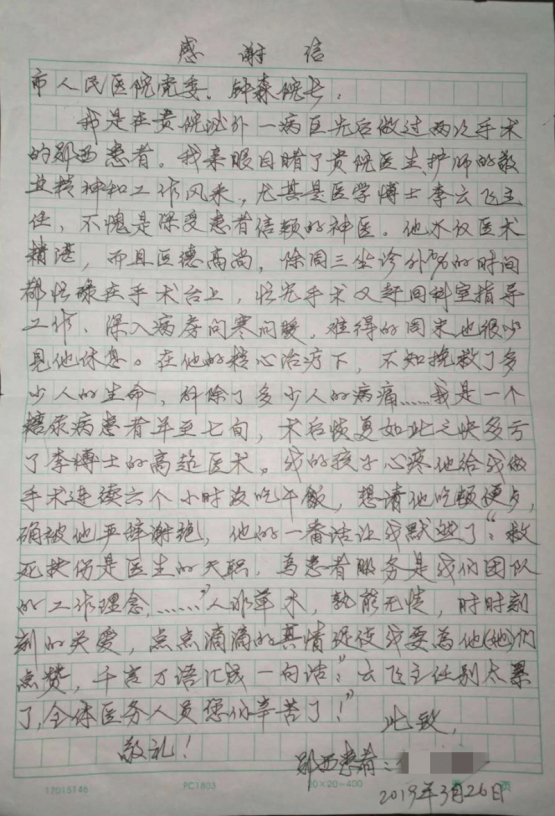 感谢信
市人民医院党委、钟森院长:
我是在贵院泌外一病区先后做过两次手术
的郧西患者。我亲眼目睹了贵院医生、护师的敬
业精神和工作风采,尤其是医学博士李云飞主
任,不愧是深受患者信赖的神医。他不仅医术
精湛,而且医德高尚,除周三坐诊外,他的时间
都忙碌在手术台上,忙完手术又赶回科室指导
工作、深入病房问寒问暖,难得的周末也很少
见他休息。在他的精心治疗下,不知挽救了多
少人的生命,解除了多少人的病痛……我是一个
糖尿病患者年至七旬,术后恢复如此之快多亏
了李博士的高超医术。我的孩子心疼他给我做
手术连续六个小时没吃午饭,想请他吃顿便点,
确被他严辞谢绝,他的一番话让我默然了:“救
死扶伤是医生的天职,为患者服务是我们团队
的工作理念……”人非草木,孰能无情,时时刻
刻的关爱,点点滴滴的真情促使我要为他(她)们
点赞,千言万语汇成一句话:“云飞主任别太累
了,全体医务人员您们辛苦了!”
此致,
敬礼!
郧西患者:
2019年3月26日
17015146 PC1803 20×20=400 第 页